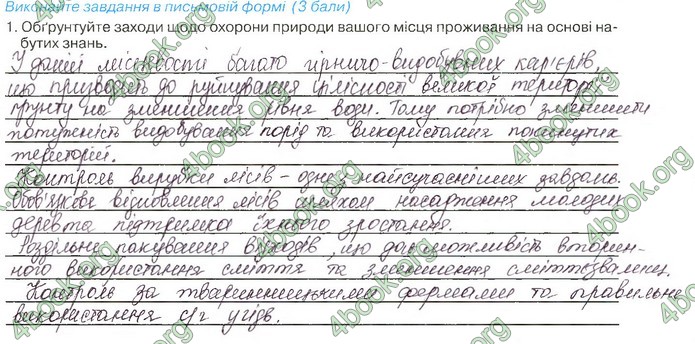 Виконайте завдання в письмовій формі (3 бали)
1. Обґрунтуйте заходи щодо охорони природи вашого місця проживання на основі на-
бутих знань.
У даній місцевості багато гірничо-видобувних кар'єрів,
що призводить до руйнування цілісності великої території
ґрунту на зменшення рівня води. Тому потрібно зменшити
потужність видобування порід та використання покинутих
територій.
Контроль вирубки лісів - одне найсучасніших завдань.
Обов'язкове відновлення лісів шляхом насадження молодих
дерев та підтримка їхнього зростання.
Роздільне пакування відходів, що дає можливість вторин-
ного використання сміття та зменшення сміттєзвалищ.
Контроль за тваринницькими фермами та правильне
використання с/г угідь.
4book.org